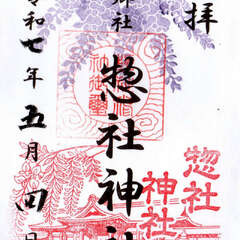 拝
郷社
惣社神社
令和七年五月四日
惣社
神社